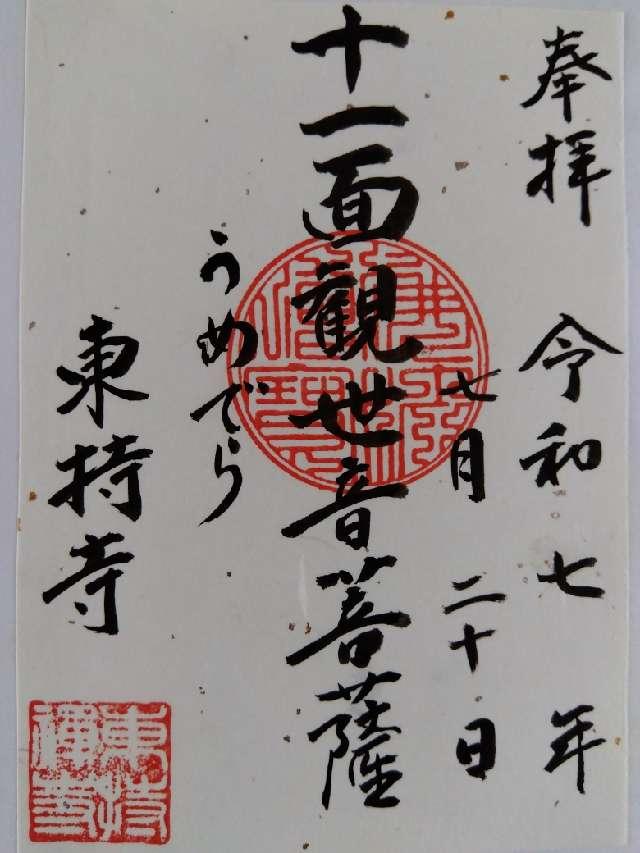 奉拝
令和七年
七月二十日
十一面観世音菩薩
うめでら
東持寺
東持禅寺